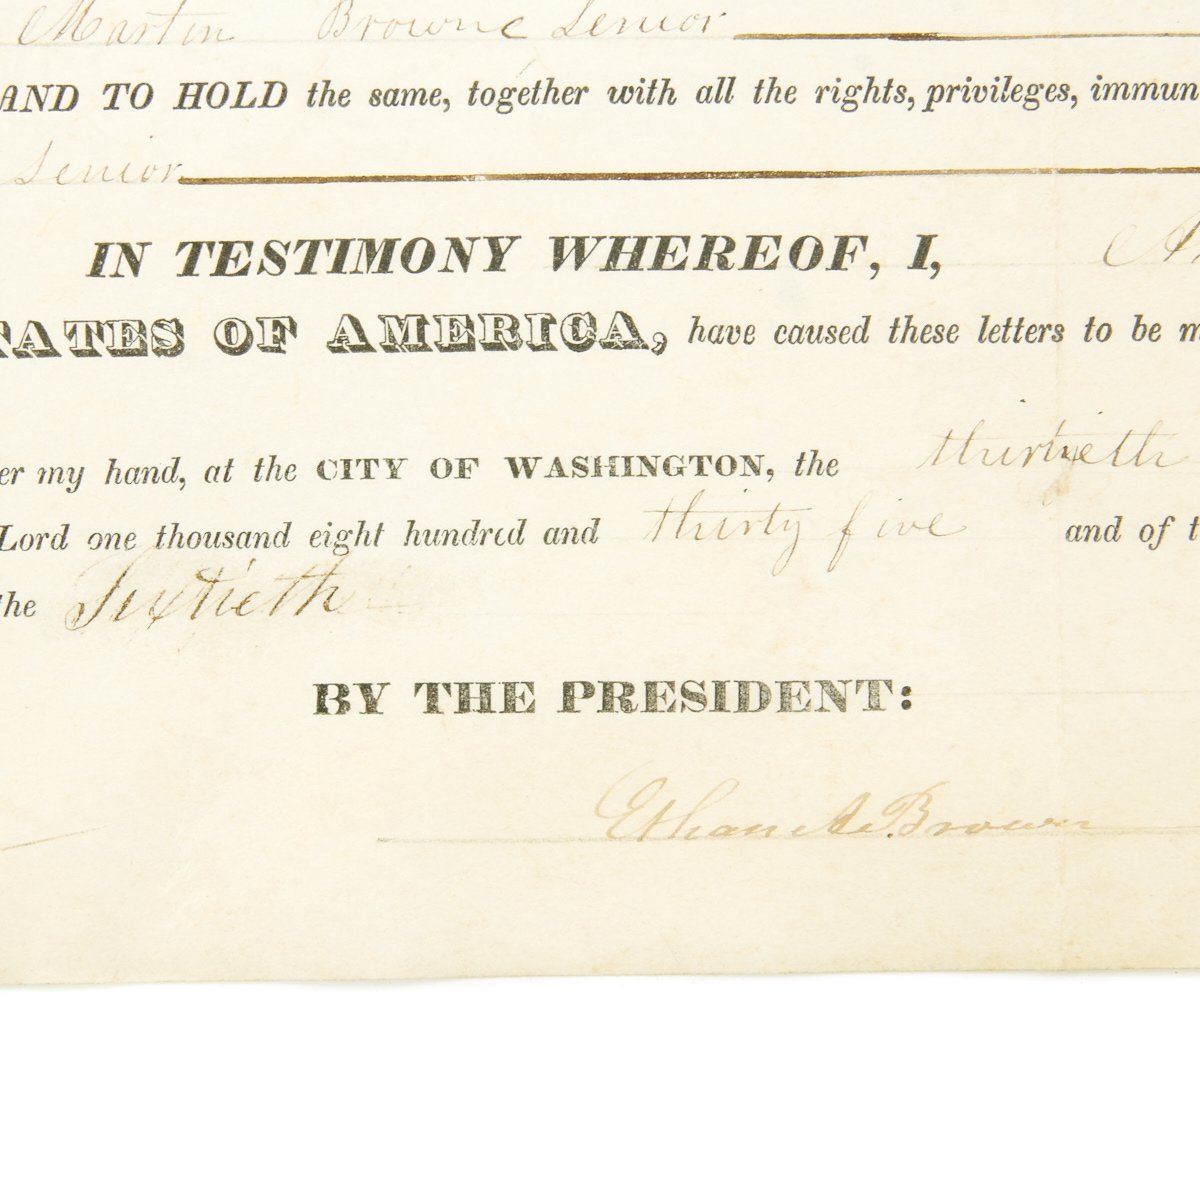 Martin Browne Senior
AND TO HOLD the same, together with all the rights, privileges, immun
Senior
IN TESTIMONY WHEREOF, I, A
TATES OF AMERICA, have caused these letters to be m
er my hand, at the CITY OF WASHINGTON, the thirtieth
Lord one thousand eight hundred and thirty five and of t
the Sixtieth
BY THE PRESIDENT:
Ethan A. Brown